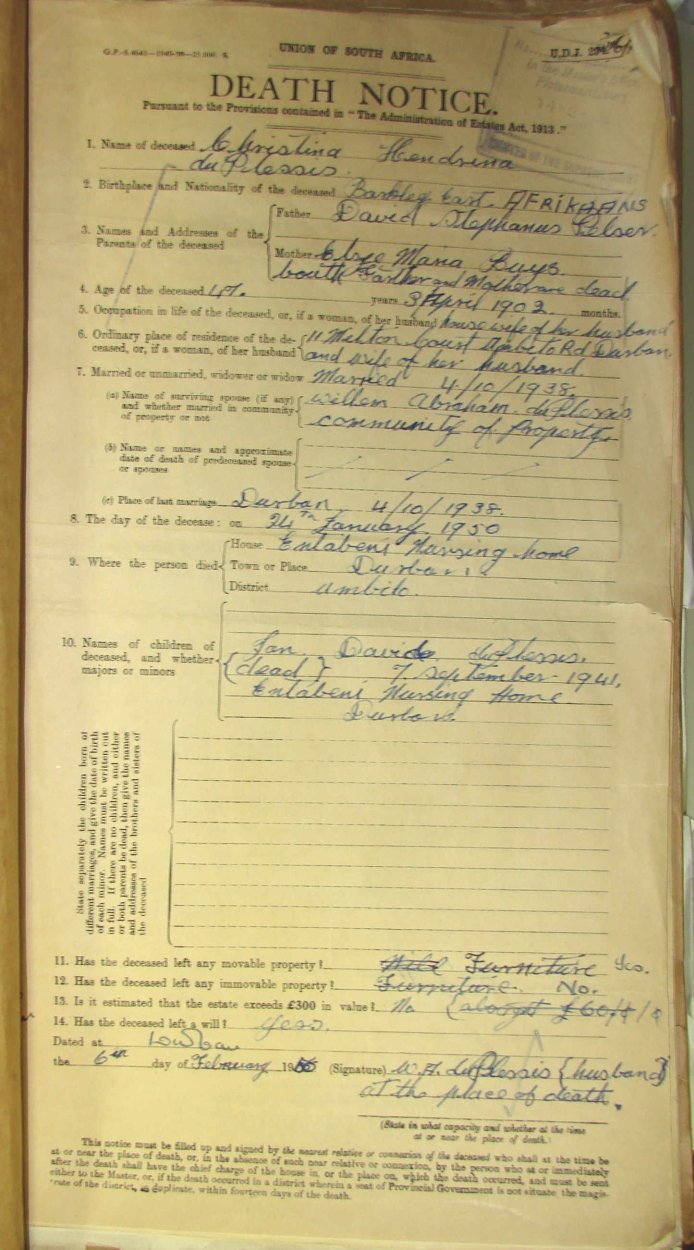 UNION OF SOUTH AFRICA.
DEATH NOTICE.
Pursuant to the Provisions contained in "The Administration of Estates Act, 1913."
1. Name of deceased Christina Hendrina
du Plessis.
2. Birthplace and Nationality of the deceased Barkley East. AFRIKAANS
3. Names and Addresses of the Parents of the deceased
Father David Stephanus Pelser.
Mother Elsje Maria Buys.
bouth Farther and Mother are dead
4. Age of the deceased 47. years 3 April 1902. months.
5. Occupation in life of the deceased, or, if a woman, of her husband house wife of her husband
6. Ordinary place of residence of the deceased, or, if a woman, of her husband
11 Milton Court Umbilo Rd Durban
and wife of her husband
7. Married or unmarried, widower or widow Married 4/10/1938.
(a) Name of surviving spouse (if any) and whether married in community of property or not
Willem Abraham. du Plessis
community of Property
(b) Name or names and approximate date of death of predeceased spouse or spouses
(c) Place of last marriage Durban 4/10/1938.
8. The day of the decease: on 24th January 1950
9. Where the person died
House Entabeni Nursing home
Town or Place Durban
District Umbilo.
10. Names of children of deceased, and whether majors or minors
Jan David du Plessis.
{dead} 7 September 1941.
Entabeni Nursing Home
Durban
State separately the children born of
different marriages, and give the date of birth
of each minor. Names must be written out
in full. If there are no children, and either
or both parents be dead, then give the names
and addresses of the brothers and sisters of
the deceased
11. Has the deceased left any movable property? Furniture Yes.
12. Has the deceased left any immovable property? Furniture. No.
13. Is it estimated that the estate exceeds £300 in value? No
14. Has the deceased left a will? yes.
Dated at
the 6th day of February 19 (Signature) W. A. du Plessis {husband}
at the place of death.
(State in what capacity and whether at the time
at or near the place of death.)
This notice must be filled up and signed by the nearest relative or connexion of the deceased who shall at the time be
at or near the place of death, or, in the absence of such near relative or connexion, by the person who at or immediately
after the death shall have the chief charge of the house in, or the place on, which the death occurred, and must be sent
either to the Master, or, if the death occurred in a district wherein a seat of Provincial Government is not situate, the magis-
trate of the district, in duplicate, within fourteen days of the death.